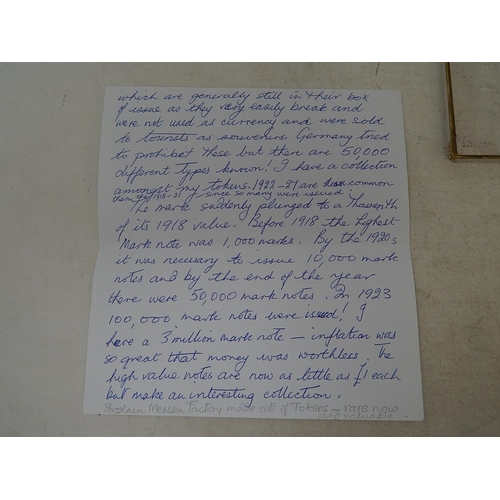 which are generally still in their box
of issue as they very easily break and
were not used as currency and were sold
to tourists as souvenirs. Germany tried
to prohibet these but there are 50,000
different types known! I have a collection
amongst my tokens. 1922-24 are less common
than 1918-21 since so many were issued!
The mark suddenly plunged to a thousenth
of its 1918 value. Before 1918 the highest
Mark note was 1,000 marks. By the 1920s
it was necessary to issue 10,000 mark
notes and by the end of the year
there were 50,000 mark notes. In 1923
100,000 mark notes were issued! I
have a 3 million mark note — inflation was
so great that money was worthless. The
high value notes are now as little as £1 each
but make an interesting collection.
Meissen Factory made sets of Tokens — rare now
and valuable